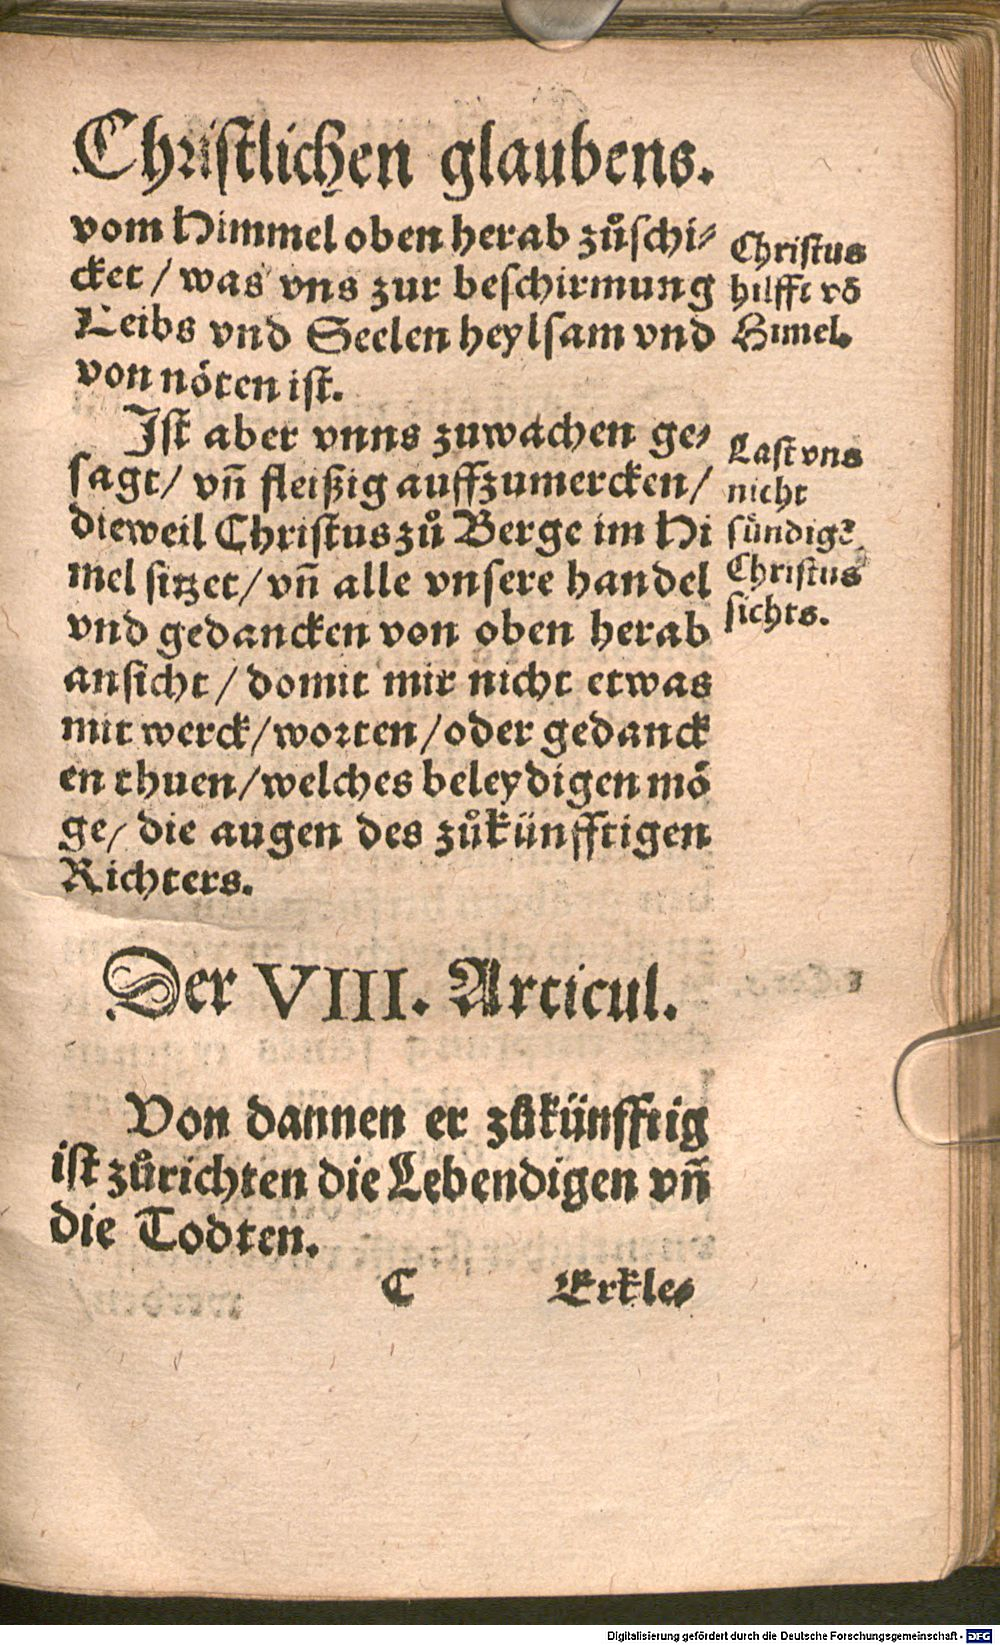 Christlichen glaubens.
vom Himmel oben herab zůschi-
cket / was vns zur beschirmung
Leibs vnd Seelen heylsam vnd
von nöten ist.
Christus
hilfft võ
Himel.
Ist aber vnns zuwachen ge-
sagt / vñ fleißig auffzumercken /
dieweil Christus zů Berge im Hi
mel sitzet / vñ alle vnsere handel
vnd gedancken von oben herab
ansicht / domit mir nicht etwas
mit werck / worten / oder gedanck
en thuen / welches beleydigen mö
ge / die augen des zůkünfftigen
Richters.
Last vns
nicht
sündigẽ
Christus
sichts.
Der VIII. Articul.
Von dannen er zůkünfftig
ist zůrichten die Lebendigen vñ
die Todten.
C Erkle-
Digitalisierung gefördert durch die Deutsche Forschungsgemeinschaft - DFG